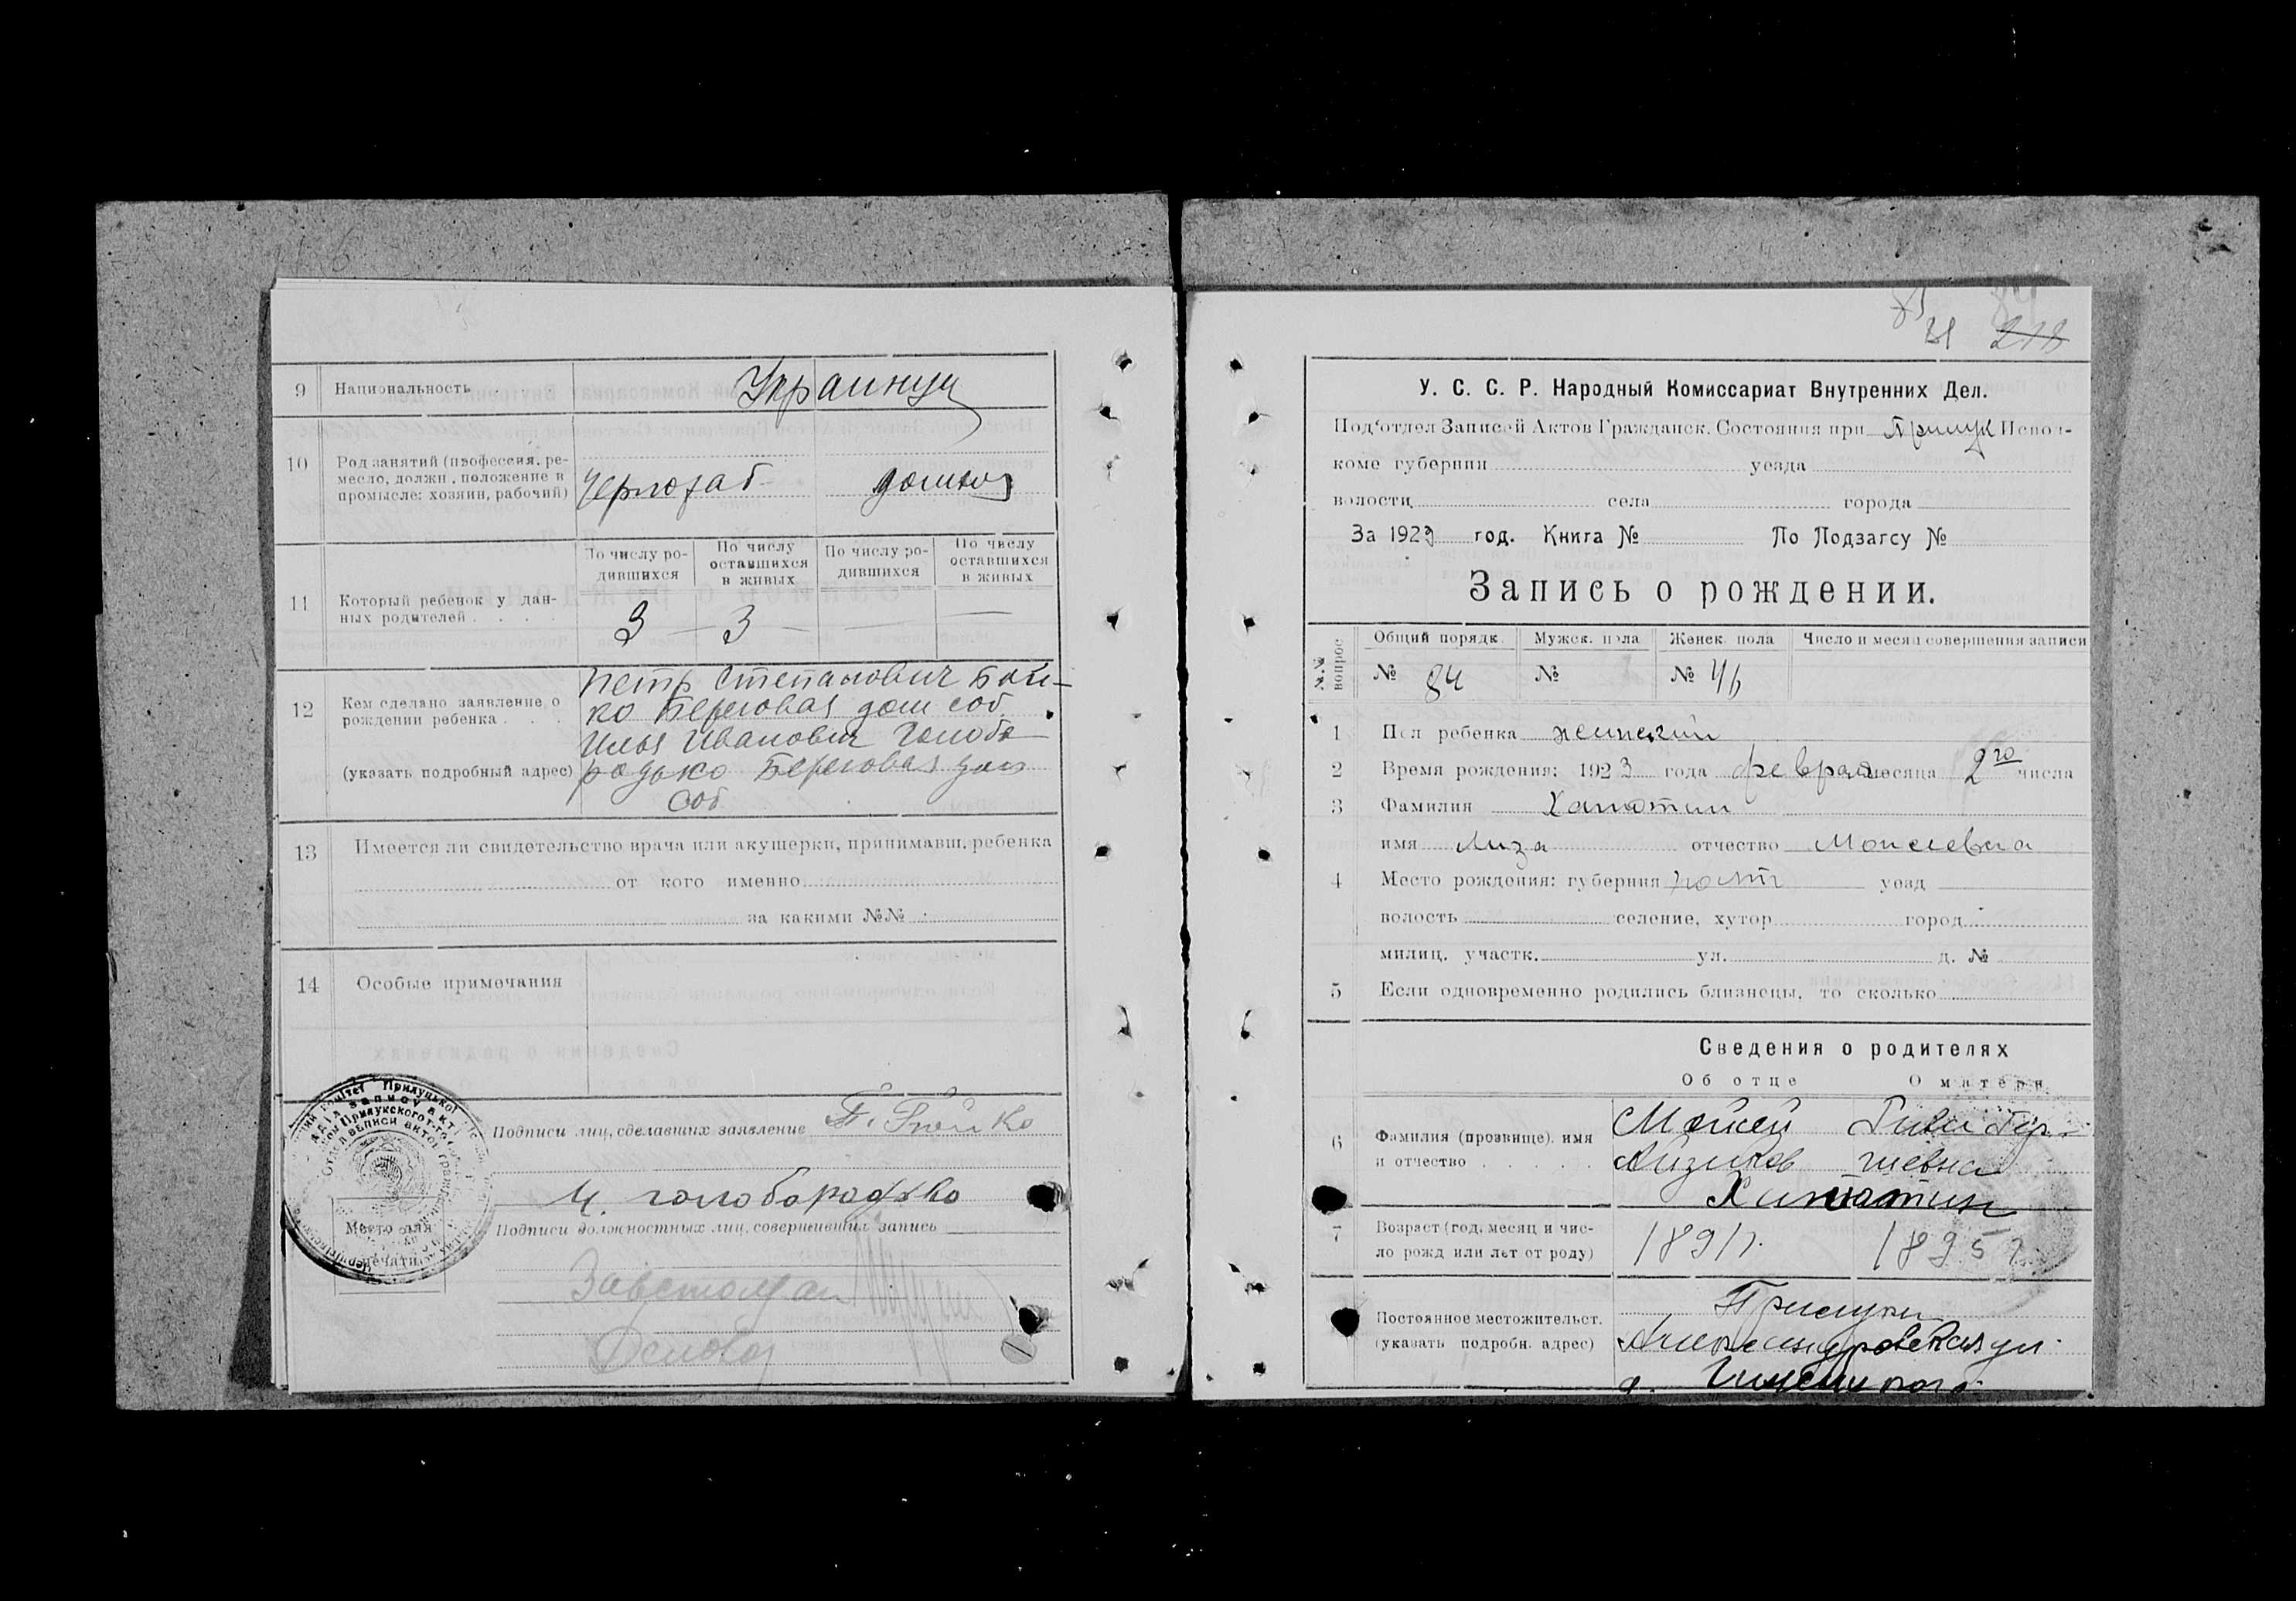 9 Национальность Украинцы
10 Род занятий (профессия, ре-
месло, должн., положение в
промысле: хозяин, рабочий)
домхоз
По числу ро-
дившихся
По числу
оставшихся
в живых
По числу ро-
дившихся
По числу
оставшихся
в живых
11 Который ребенок у дан-
ных родителей . . . .
3 — 3 — — —
12 Кем сделано заявление о
рождении ребенка . . .
(указать подробный адрес)
Петр Степанович Бой-
ко Береговая дом соб.
Илья Иванович Голобо-
родько Береговая дом
соб
13 Имеется ли свидетельство врача или акушерки, принимавш. ребенка
от кого именно
за какими №№
14 Особые примечания
Подписи лиц, сделавших заявление П. Бойко
И. голобородько
Подписи должностных лиц, совершивших запись
Завстолом
Место для
печати
84
81 218
У. С. С. Р. Народный Комиссариат Внутренних Дел.
Подотдел Записей Актов Гражданск. Состояния при Прилук Испол-
коме губернии уезда
волости села города
За 1923 год. Книга № По Подзагсу №
Запись о рождении.
№.№ вопрос.
Общий порядк. Мужск. пола Женск. пола Число и месяц совершения записи
№ 84 № № 46
1 Пол ребенка женский
2 Время рождения: 1923 года февраля месяца 2го числа
3 Фамилия Хапотин
имя Лиза отчество Моисеевна
4 Место рождения: губерния Полт уезд
волость селение, хутор город
милиц. участк. ул. д. №
5 Если одновременно родились близнецы, то сколько
Сведения о родителях
Об отце О матери
6 Фамилия (прозвище), имя
и отчество . . . . .
Мойсей
7 Возраст (год, месяц и чис-
ло рожд или лет от роду)
1891 г. 1895 г.
Постоянное местожительст.
(указать подробн. адрес)
Прилуки
Александровская ул.
д.